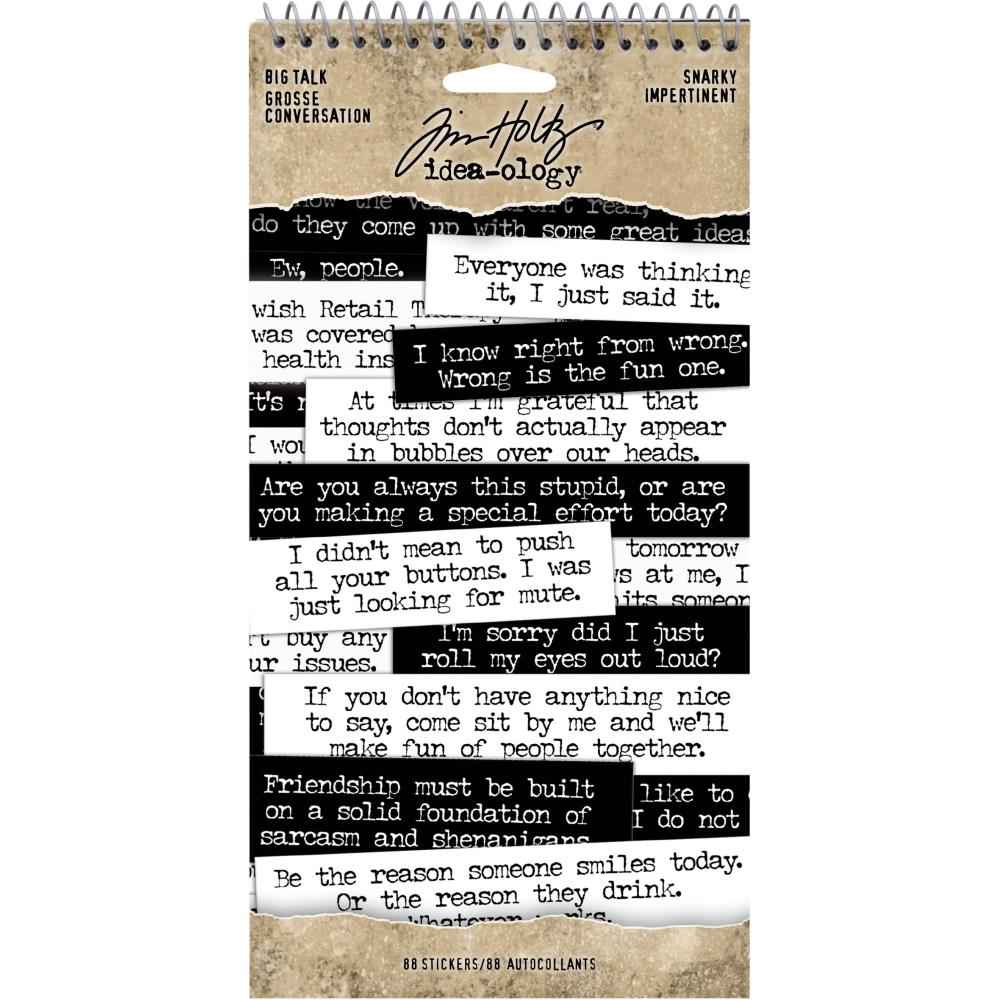 BIG TALK
GROSSE
CONVERSATION
SNARKY
IMPERTINENT
Tim Holtz
idea-ology
now the
aren't real,
do they come up with some great ideas
Ew, people.
Everyone was thinking
it, I just said it.
wish Retail
was covered
health ins
I know right from wrong.
Wrong is the fun one.
It's
At times I'm grateful that
thoughts don't actually appear
in bubbles over our heads.
I wou
Are you always this stupid, or are
you making a special effort today?
I didn't mean to push
all your buttons. I was
just looking for mute.
tomorrow
ws at me, I
hits someon
't buy any
ur issues.
I'm sorry did I just
roll my eyes out loud?
If you don't have anything nice
to say, come sit by me and we'll
make fun of people together.
Friendship must be built
on a solid foundation of
sarcasm and shenanigans
like to
I do not
Be the reason someone smiles today.
Or the reason they drink.
Whatever works.
88 STICKERS/88 AUTOCOLLANTS